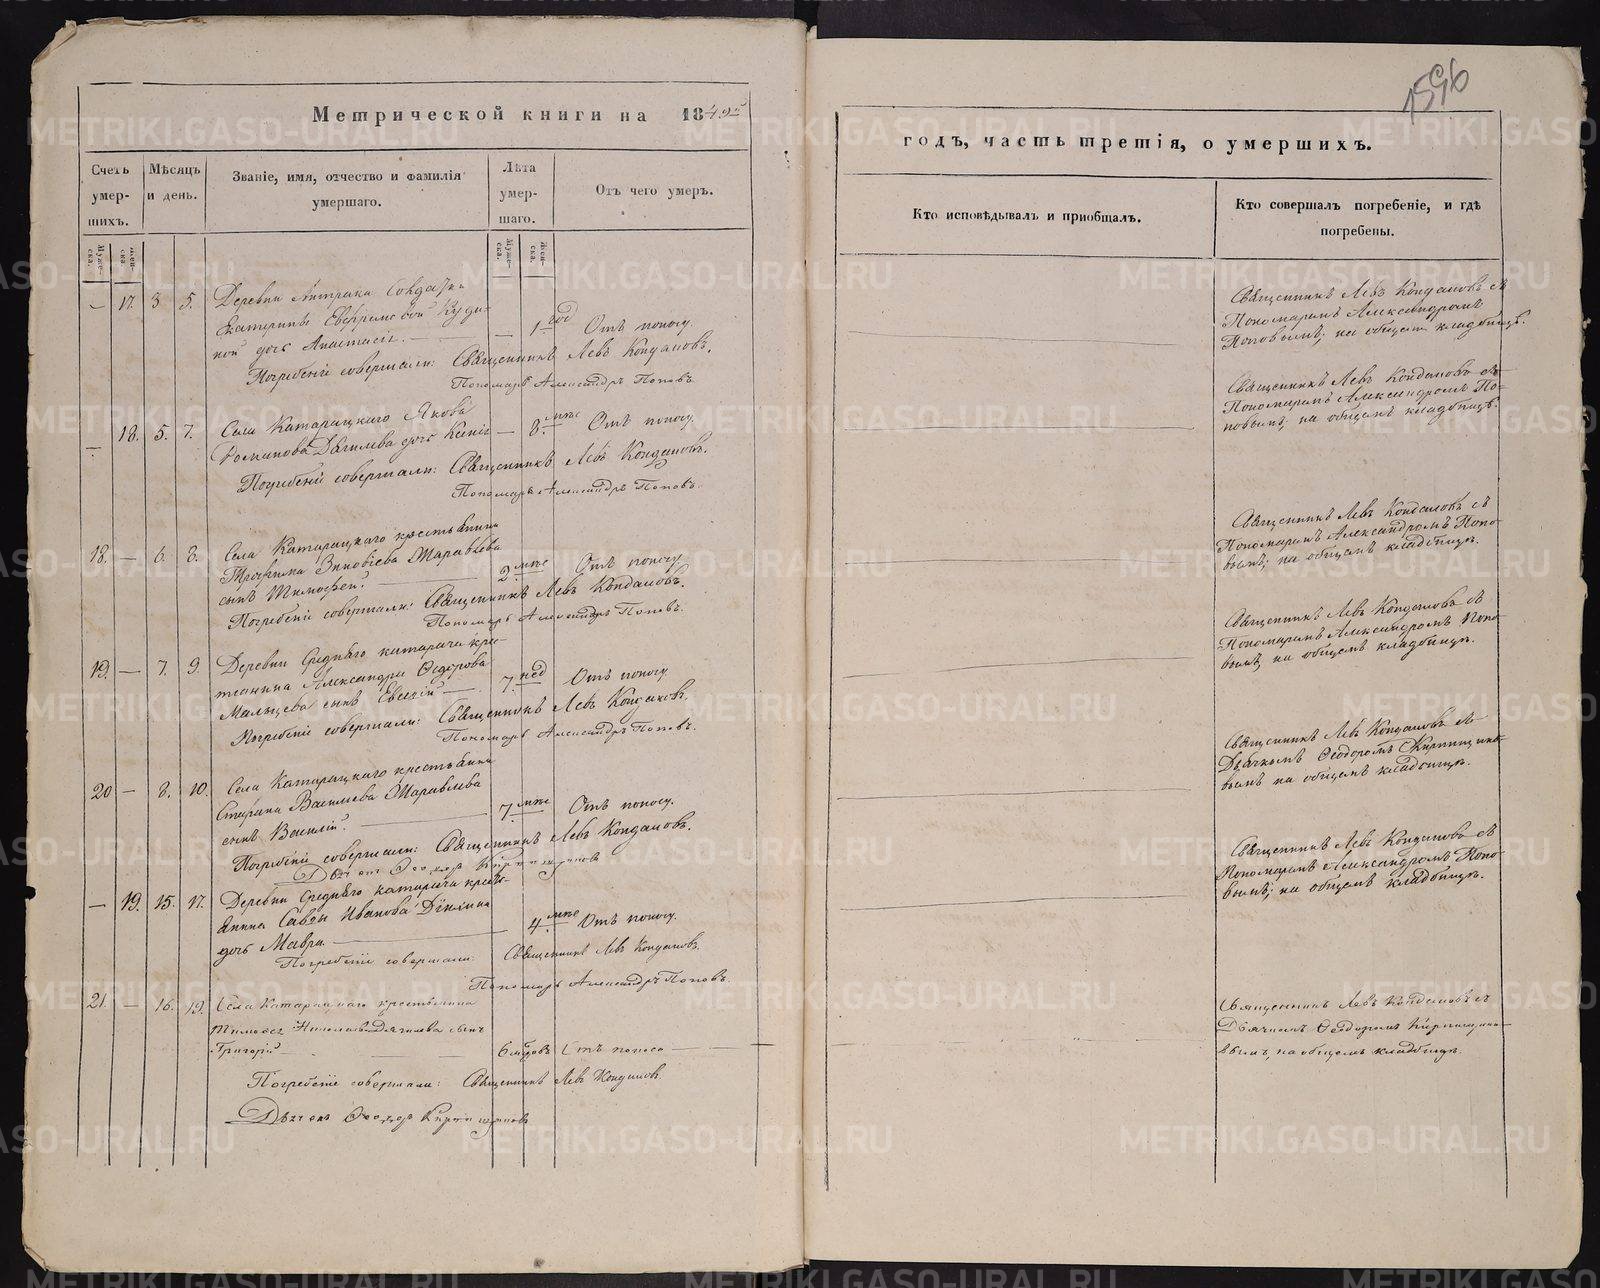 Метрической книги на 1849й
Счетъ умерших. Мѣсяцъ и день. Званіе, имя, отчество и фамилія умершаго. Лѣта умершаго. Отъ чего умеръ.
Муже-ска. Жен-ска. Муже-ска. Жен-ска.
— 17. 3 5. Деревни
Екатерины
ной дочь Анастасія. — 1 год Отъ поносу.
Погребеніе совершали: Священникъ Левъ Кондаковъ.
Пономарь Александръ Поповъ.
— 18. 5. 7. Села Катарацкаго Якова
Романова дочь — 8. мце Отъ поносу
Погребеніе совершали: Священникъ Левъ Кондаковъ.
Пономарь Александръ Поповъ.
18. — 6. 8. Села Катарацкаго крестьянина
Трофима Зиновіева Журавлева
сынъ Тимофей. 2 мце Отъ поносу
Погребеніе совершали: Священникъ Левъ Кондаковъ.
Пономарь Александръ Поповъ.
19. — 7. 9. Деревни Средняго катарача крес-
тьянина Александра Ѳедорова
Мальцева сынъ Евсевій — 7. нед Отъ поносу
Погребеніе совершали: Священникъ Левъ Кондаковъ.
Пономарь Александръ Поповъ.
20 — 8. 10. Села Катарацкаго крестьянина
Василіева Журавлева
сынъ Василій. 7 мце Отъ поносу.
Погребеніе совершали: Священникъ Левъ Кондаковъ.
Дьячекъ Ѳеодоръ Кирпищиковъ
— 19. 15. 17. Деревни Средняго катарача кресть-
янина Савы Иванова
дочь Мавра — 4. мце Отъ поносу.
Погребеніе совершали: Священникъ Левъ Кондаковъ.
Пономарь Александръ Поповъ.
21. — 16. 19. Села Катарацкаго крестьянина
Николаева сынъ
Григорій — 6 Отъ поноса —
Погребеніе совершали: Священникъ Левъ Кондаковъ.
Дьячекъ Ѳеодоръ Кирпищиковъ
годъ, часть третія, о умершихъ.
Кто исповѣдывалъ и пріобщалъ. Кто совершалъ погребеніе, и гдѣ погребены.
Священникъ Левъ Кондаковъ съ
Пономаремъ Александромъ
Поповымъ; на общемъ кладбищѣ.
Священникъ Левъ Кондаковъ съ
Пономаремъ Александромъ По-
повымъ; на общемъ кладбищѣ.
Священникъ Левъ Кондаковъ съ
Пономаремъ Александромъ Попо-
вымъ; на общемъ кладбищѣ.
Священникъ Левъ Кондаковъ съ
Пономаремъ Александромъ Попо-
вымъ, на общемъ кладбищѣ.
Священникъ Левъ Кондаковъ съ
Дьячкомъ Ѳеодоромъ Кирпищико-
вымъ на общемъ кладбищѣ.
Священникъ Левъ Кондаковъ съ
Пономаремъ Александромъ Попо-
вымъ; на общемъ кладбищѣ.
Священникъ Левъ Кондаковъ съ
Дьячкомъ Ѳеодоромъ Кирпищико-
вымъ, на общемъ кладбищѣ.
METRIKI.GASO-URAL.RU